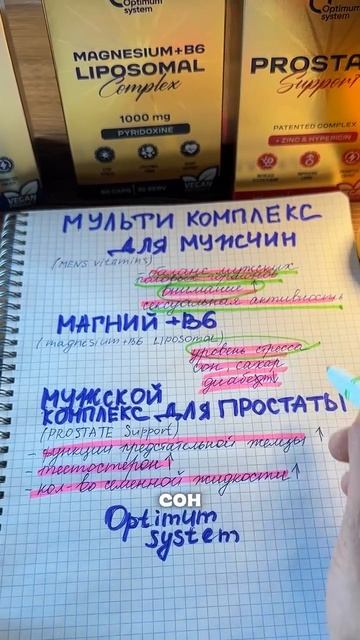 Optimum
system
MAGNESIUM+B6
LIPOSOMAL
Complex
1000 mg
PYRIDOXINE
60 CAPS
VEGAN
Optimum
system
PROSTA
Support
PATENTED COMPLEX
+ ZINC & HYPERICIN
VEGAN
МУЛЬТИ КОМПЛЕКС
ДЛЯ МУЖЧИН
(MENS vitamins)
- баланс мужских
половых гормонов
внимание ↑
сексуальная активность
МАГНИЙ +B6
(magnesium+B6 LIPOSOMAL)
уровень стресса
сон, сахар
диабет
МУЖСКОЙ
КОМПЛЕКС ДЛЯ ПРОСТАТЫ
(PROSTATE Support)
- функции предстательной железы ↑
- тестостерон ↑
- кол-во семенной жидкости ↑
СОН
Optimum
system